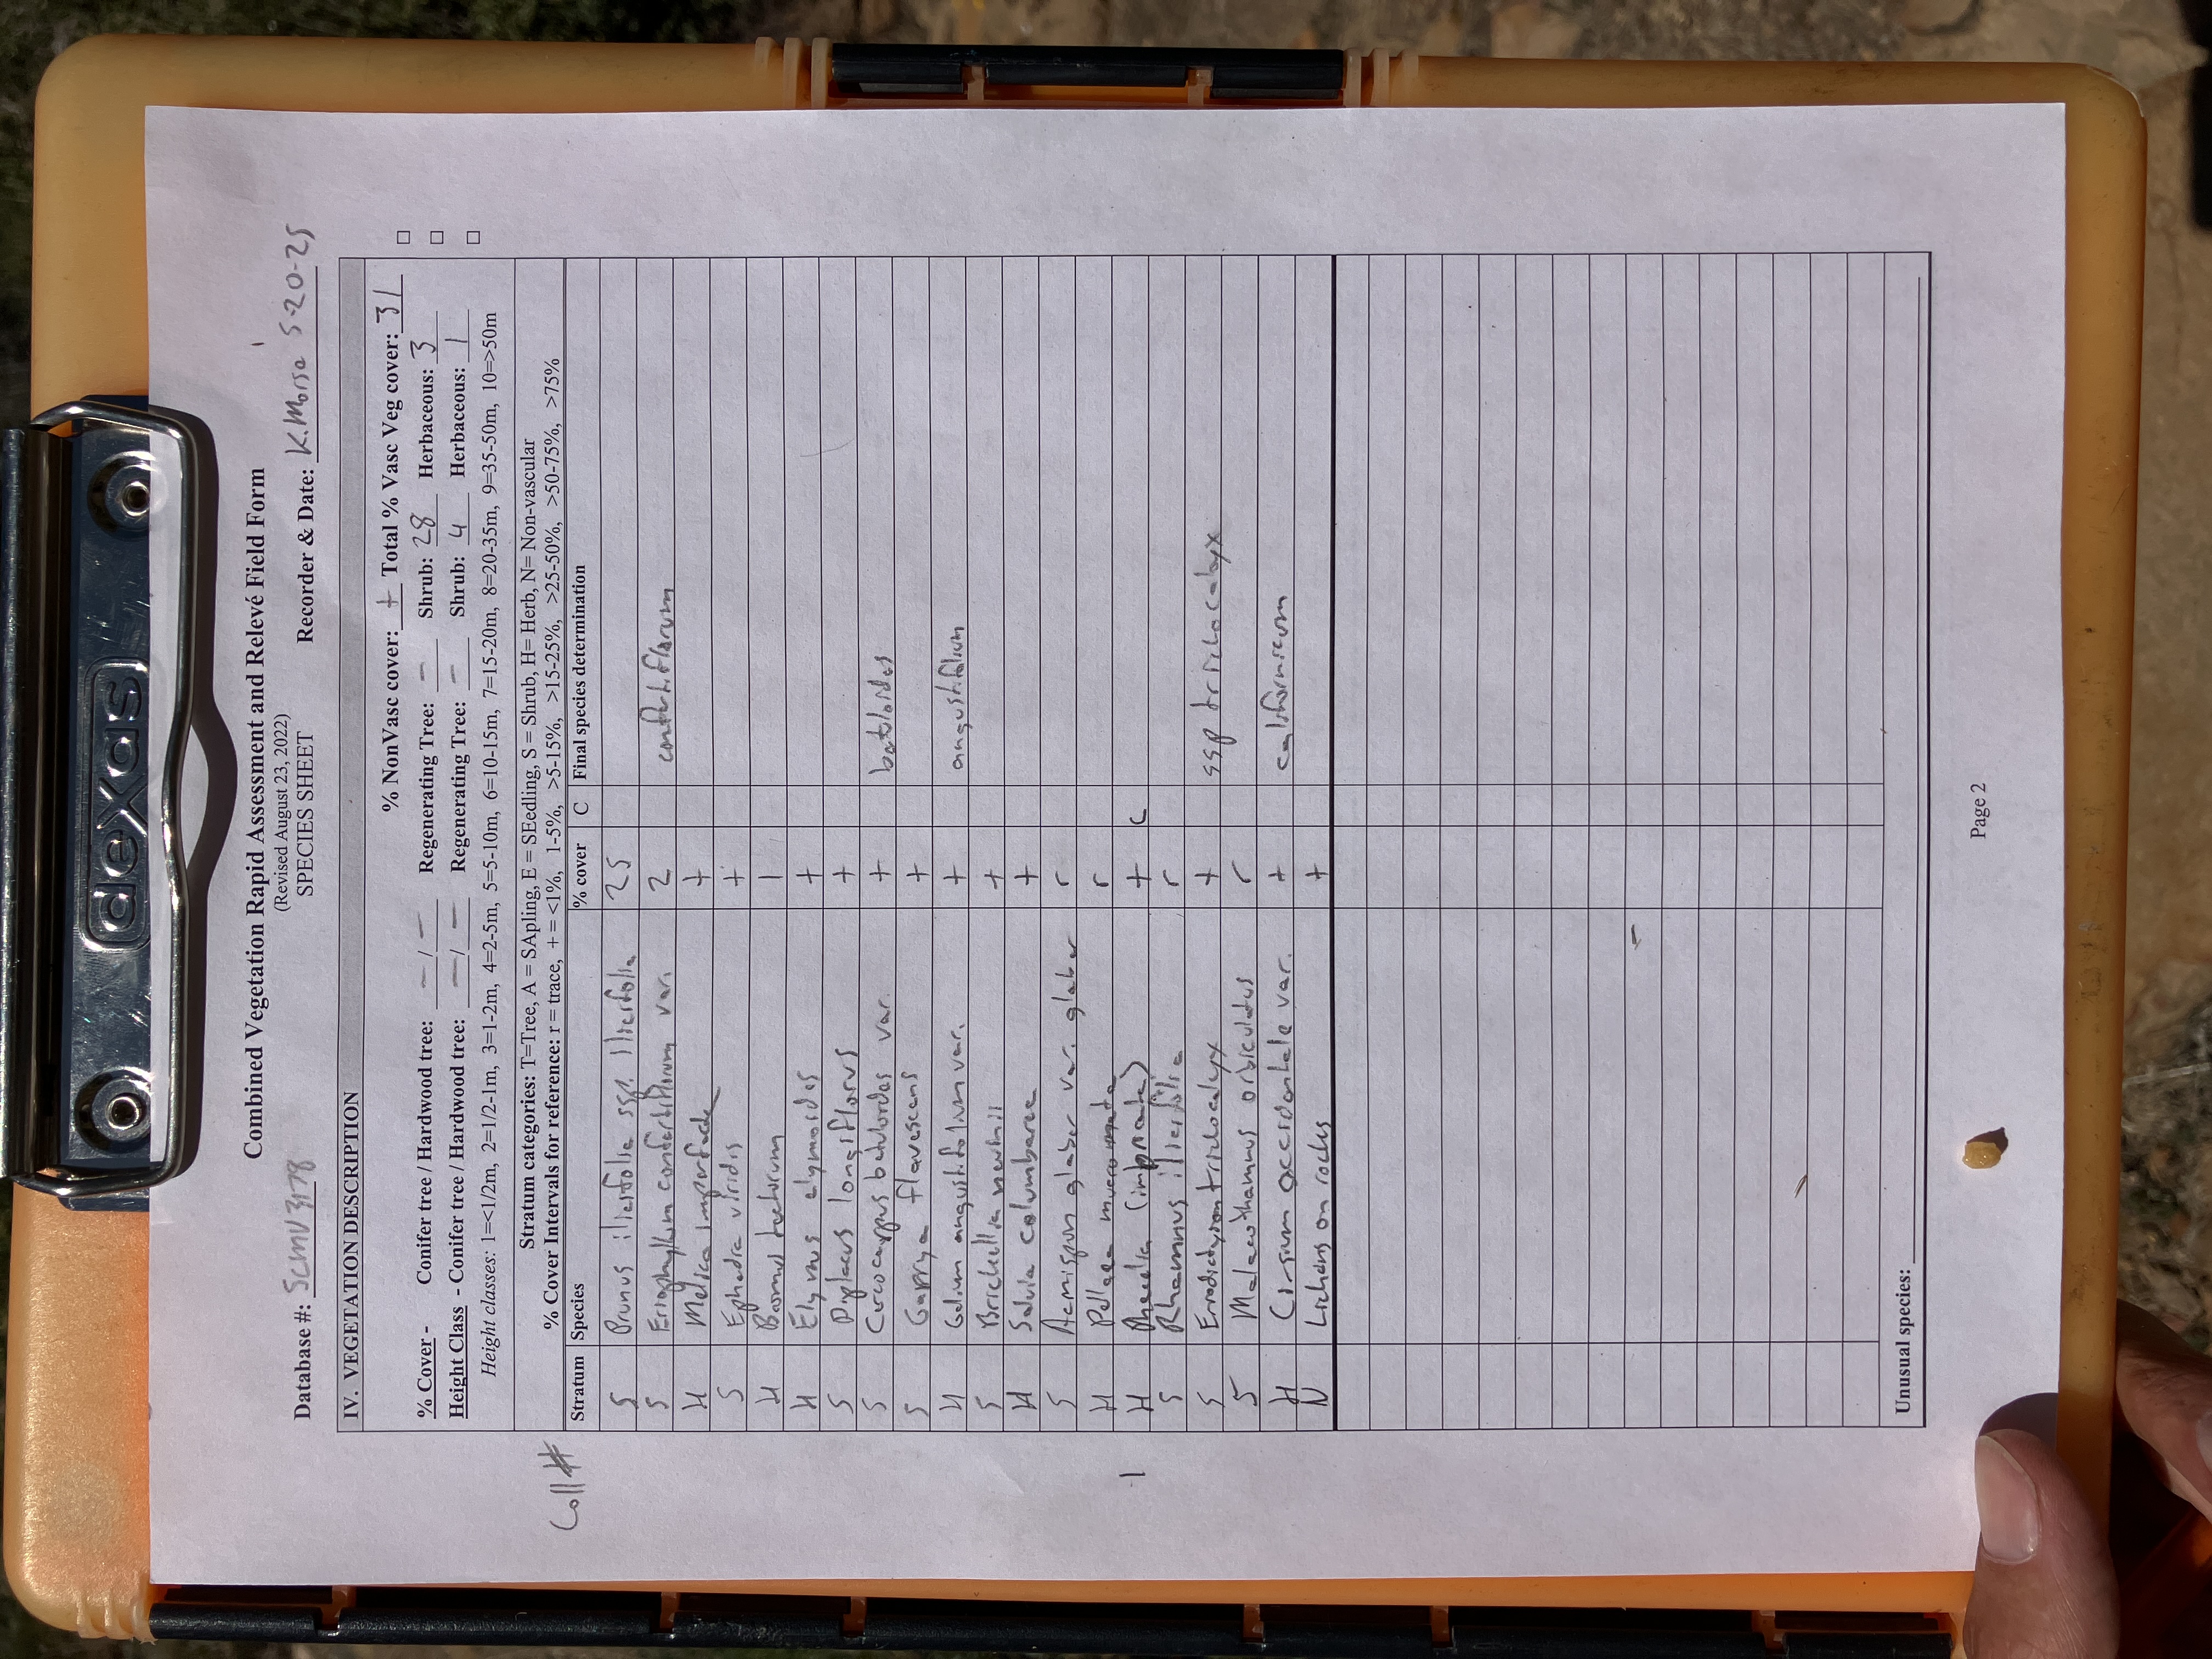 dexas
Combined Vegetation Rapid Assessment and Relevé Field Form
(Revised August 23, 2022)
SPECIES SHEET
Database #: SCMV3178 Recorder & Date: K.Morse 5-20-25
IV. VEGETATION DESCRIPTION
% NonVasc cover: + Total % Vasc Veg cover: 31 □
% Cover - Conifer tree / Hardwood tree: - / - Regenerating Tree: - Shrub: 28 Herbaceous: 3 □
Height Class - Conifer tree / Hardwood tree: - / - Regenerating Tree: - Shrub: 4 Herbaceous: 1 □
Height classes: 1=<1/2m, 2=1/2-1m, 3=1-2m, 4=2-5m, 5=5-10m, 6=10-15m, 7=15-20m, 8=20-35m, 9=35-50m, 10=>50m
Stratum categories: T=Tree, A = SApling, E = SEedling, S = Shrub, H= Herb, N= Non-vascular
% Cover Intervals for reference: r = trace, + = <1%, 1-5%, >5-15%, >15-25%, >25-50%, >50-75%, >75%
Coll #
Stratum Species % cover C Final species determination
S Prunus ilicifolia ssp. ilicifolia 25
S Eriophyllum confertiflorum var. 2 confertiflorum
H Melica imperfecta +
S Ephedra viridis +
H Bromus tectorum 1
H Elymus elymoides +
S Diplacus longiflorus +
S Cercocarpus betuloides var. + betuloides
S Garrya flavescens +
H Galium angustifolium var. + angustifolium
S Brickellia nevinii +
H Salvia columbariae +
S Acmispon glaber var. glaber r
H Pellaea mucronata r
1 H Phacelia (imbricata) + C
S Rhamnus ilicifolia r
S Eriodictyon trichocalyx + ssp trichocalyx
S Malacothamnus orbiculatus r
H Cirsium occidentale var. + californicum
N Lichens on rocks +
Unusual species:
Page 2